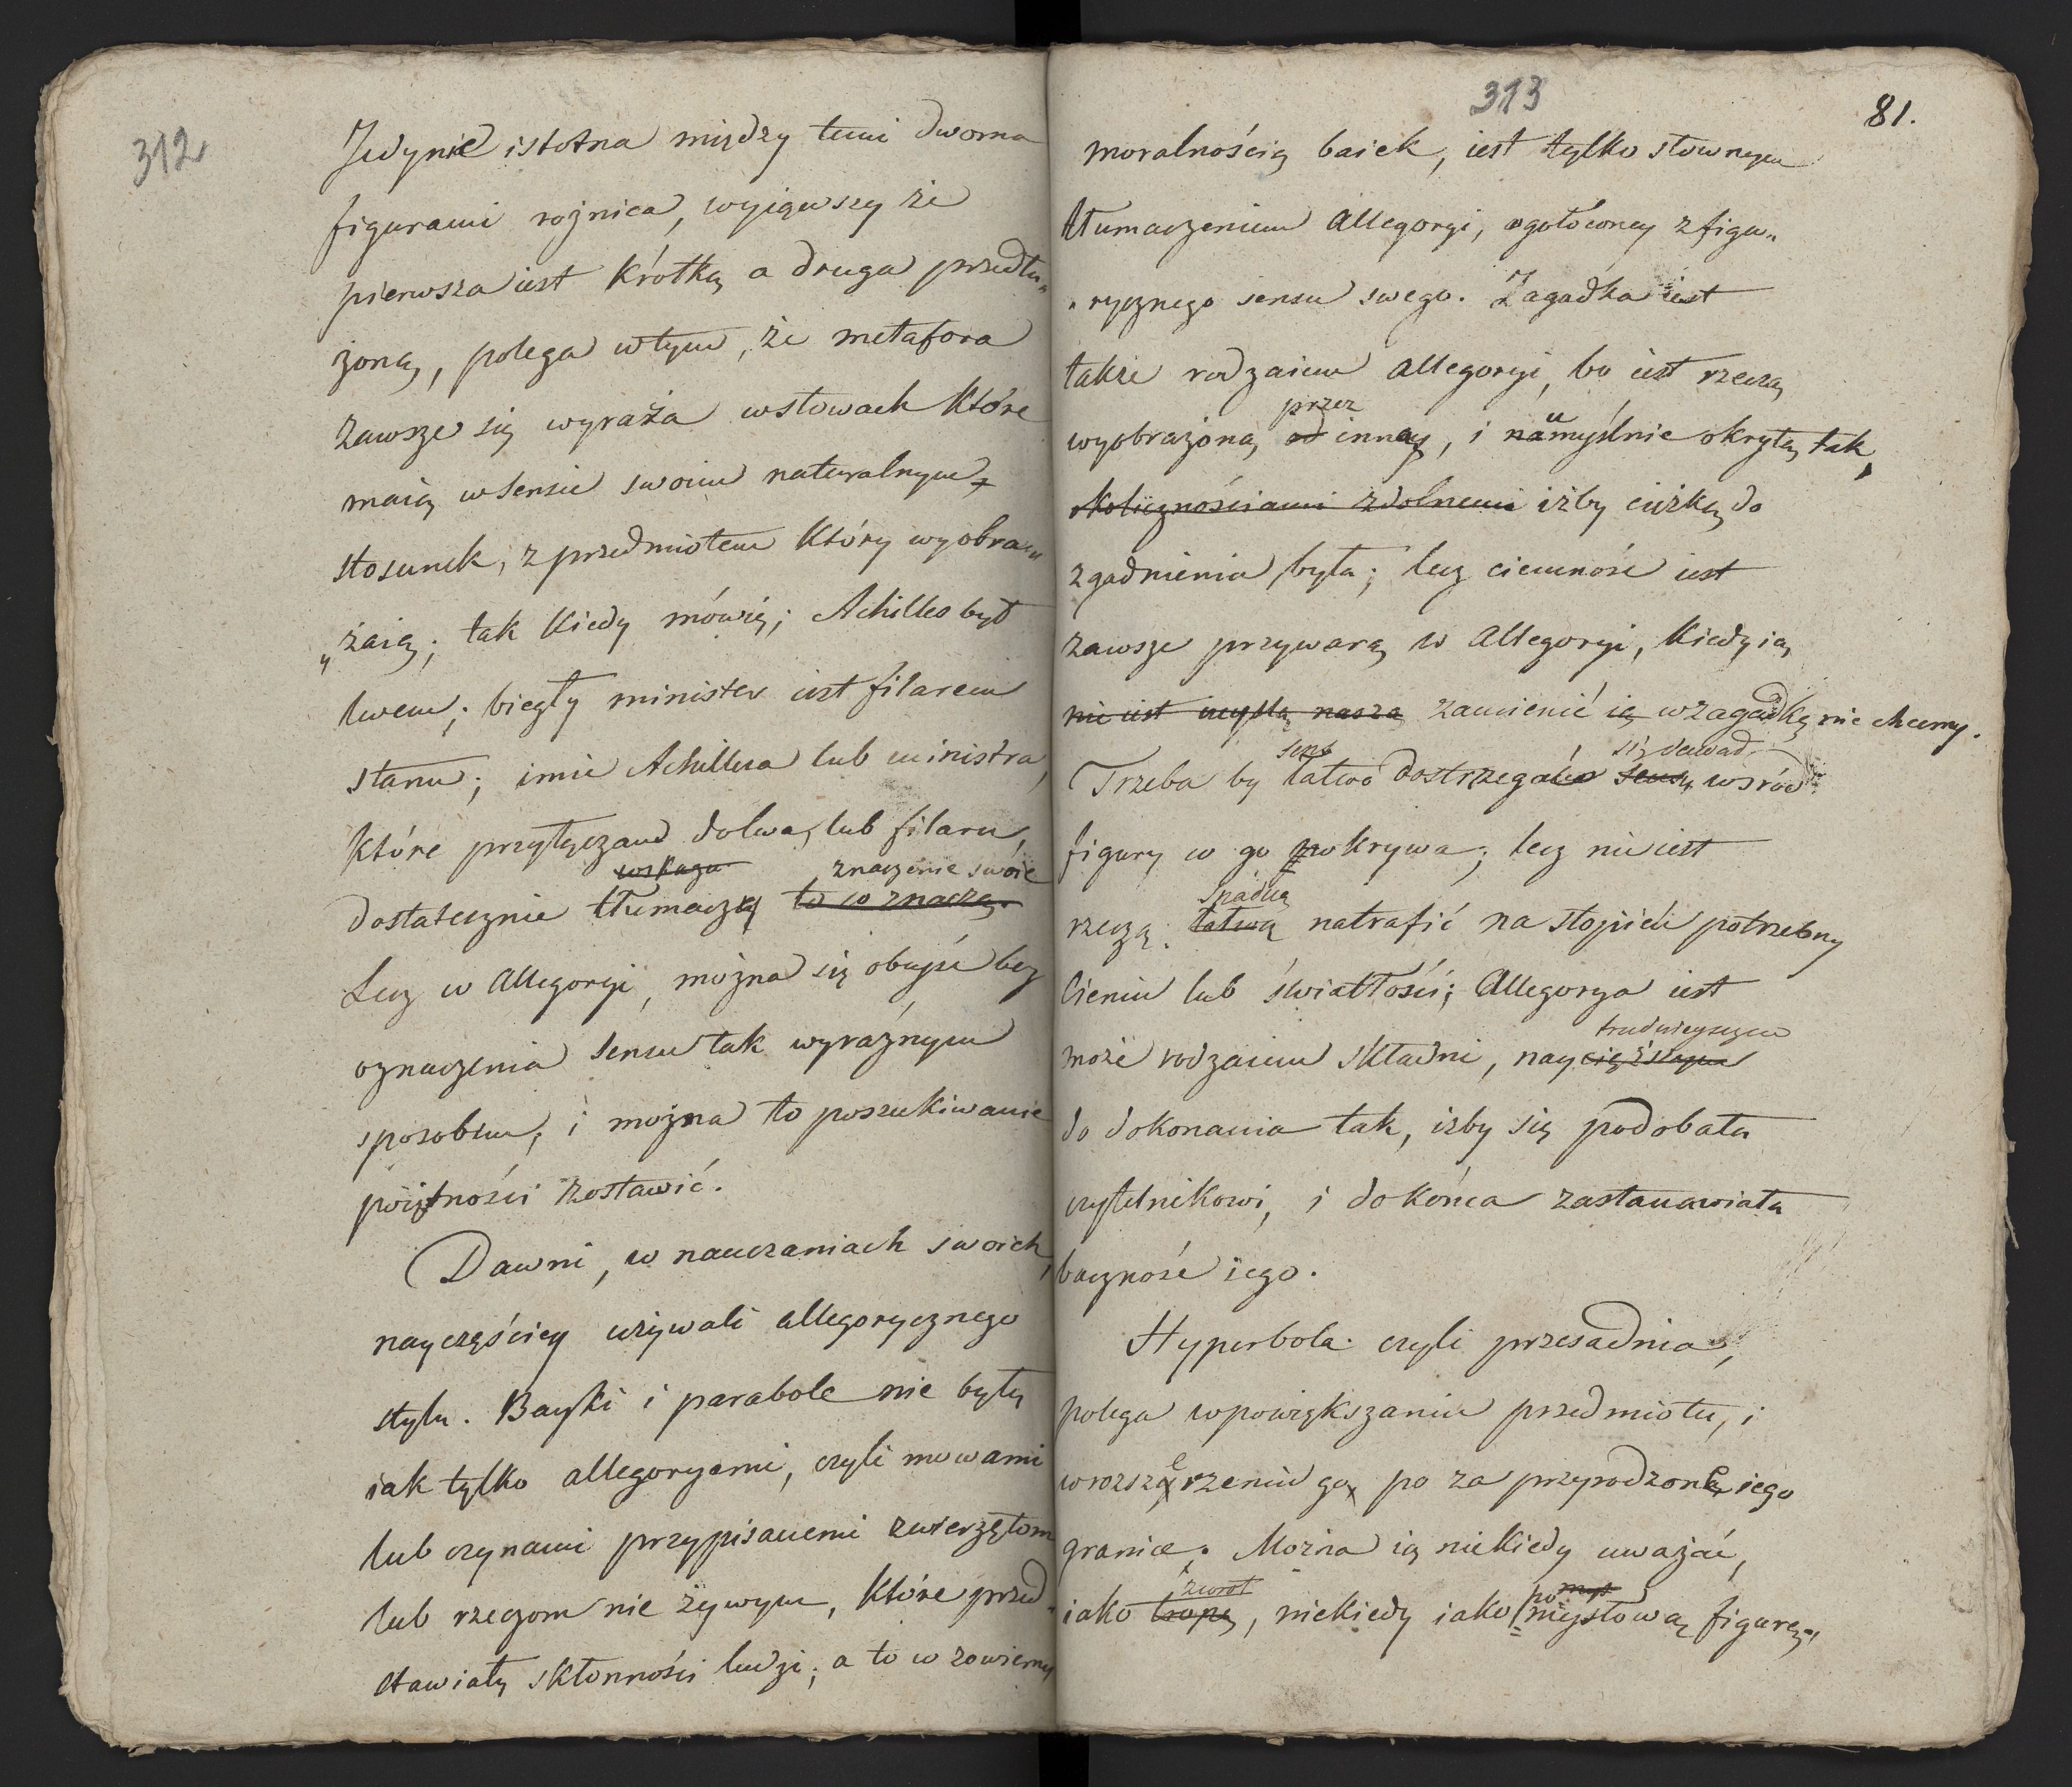 312
Jedynie istotna między temi dwoma
figurami rożnica, wyiąwszy że
pierwsza iest krótką a druga przedłu„
żoną, polega w tym, że metafora
zawsze się wyraża w słowach które
maią w sensie swoim naturalnym
stosunek, z przedmiotem który wyobra„
„żaią; tak kiedy mówię; Achilles był
lwem; biegły minister iest filarem
stanu; imie Achillesa lub ministra,
które przyłączam do lwa, lub filaru,
wskaza znaczenie swoie
dostatecznie tłumaczy to co znaczą.
Lecz w Allegoryi, można się obejść bez
oznaczenia sensu tak wyraźnym
sposobem, i można to poszukiwanie
poiętności zostawić.
Dawni, w nauczaniach swoich,
nayczęściey używali allegorycznego
stylu. Bayki i parabole nie były
iak tylko allegoryami, czyli mowami
lub czynami przypisanemi zwierzętom
lub rzeczom nie żywym, które przed„
stawiały skłonności ludzi; a to co zowiemy
313
81.
moralnością baiek, iest tylko słownym
tłumaczeniem Allegoryi, ogołóconey z figu„
„rycznego sensu swego. Zagadka iest
także rodzaiem allegoryi, bo iest rzeczą
przez
wyobrażoną od inney, i umyślnie okrytą tak,
okolicznościami zdolnemi iżby ciężką do
zgadnienia była; lecz ciemność iest
zawsze przywarą w Allegoryi, kiedy ią
nie iest myślą naszą zamienić ią w zagadkę nie chcemy.
sens się dawał
Trzeba by łatwo dostrzegać sensu wsród
figury co go pokrywa; lecz nie iest
rzeczą łatwą natrafić na stopień potrzebny
cieniu lub światłości; Allegorya iest
trudnieyszem
może rodzaiem składni, naycięższym
do dokonania tak, iżby się podobała
czytelnikowi, i do końca zastanawiała
baczność iego.
Hyperbola czyli przesadnia,
polega w powiększaniu przedmiotu, i
w rozszerzeniu go, po za przyrodzone iego
granice. Można ią niekiedy uważać,
zwrot
iako tropę, niekiedy iako pomysłową figurę,